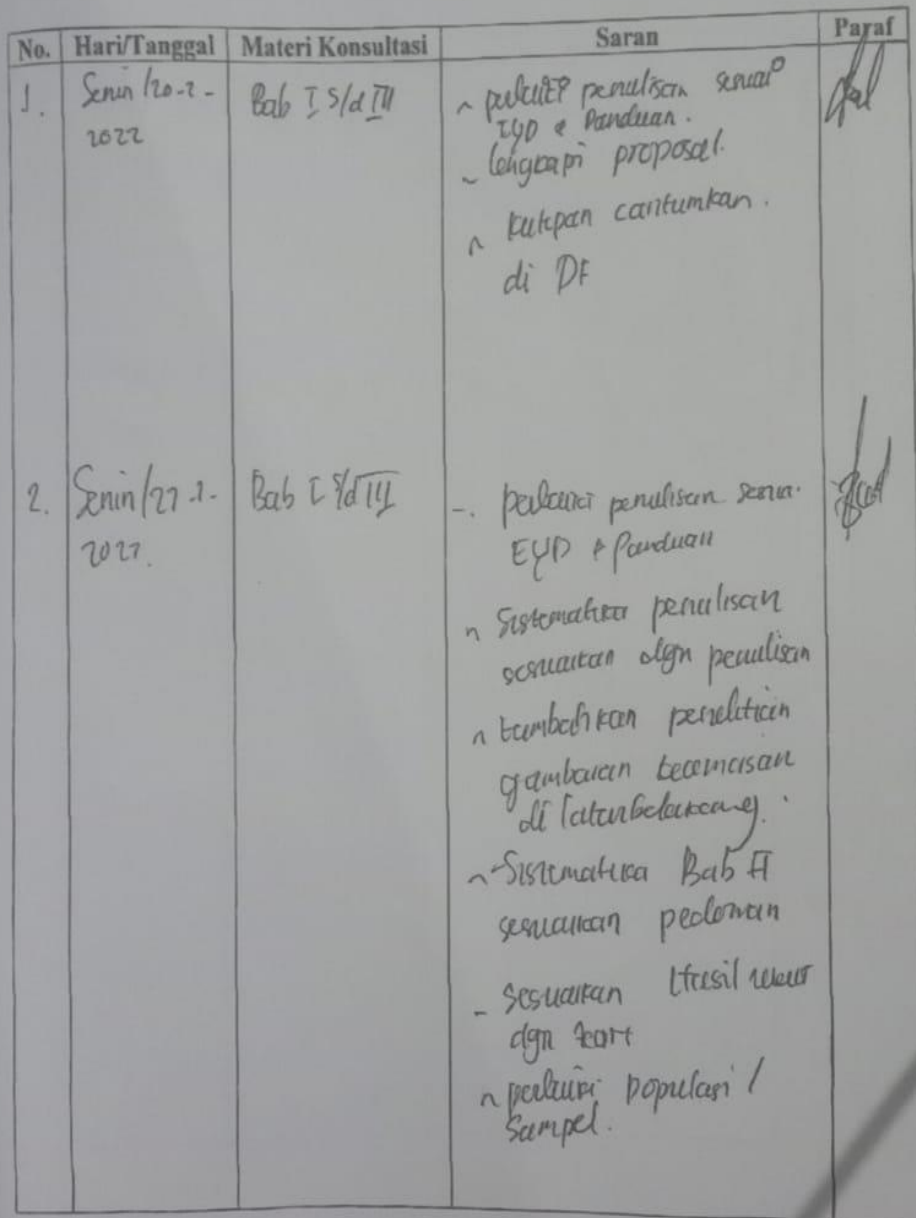 No. Hari/Tanggal Materi Konsultasi Saran Paraf
1. Senin/20-2- Bab I s/d III ~ perbaiki penulisan sesuai
2022 EYD & Panduan.
~ lengkapi proposal.
~ kutipan cantumkan.
di DF
2. Senin/27-2- Bab I s/d III -. perbaiki penulisan sesuai
2022. EYD & Panduan
~ Sistematika penulisan
sesuaikan dgn penulisan
~ tambahkan penelitian
gambaran kecemasan
di latarbelakang.
~ Sistematika Bab II
sesuaikan pedoman
- Sesuaikan Hasil ukur
dgn
~ perbaiki populasi /
Sampel.